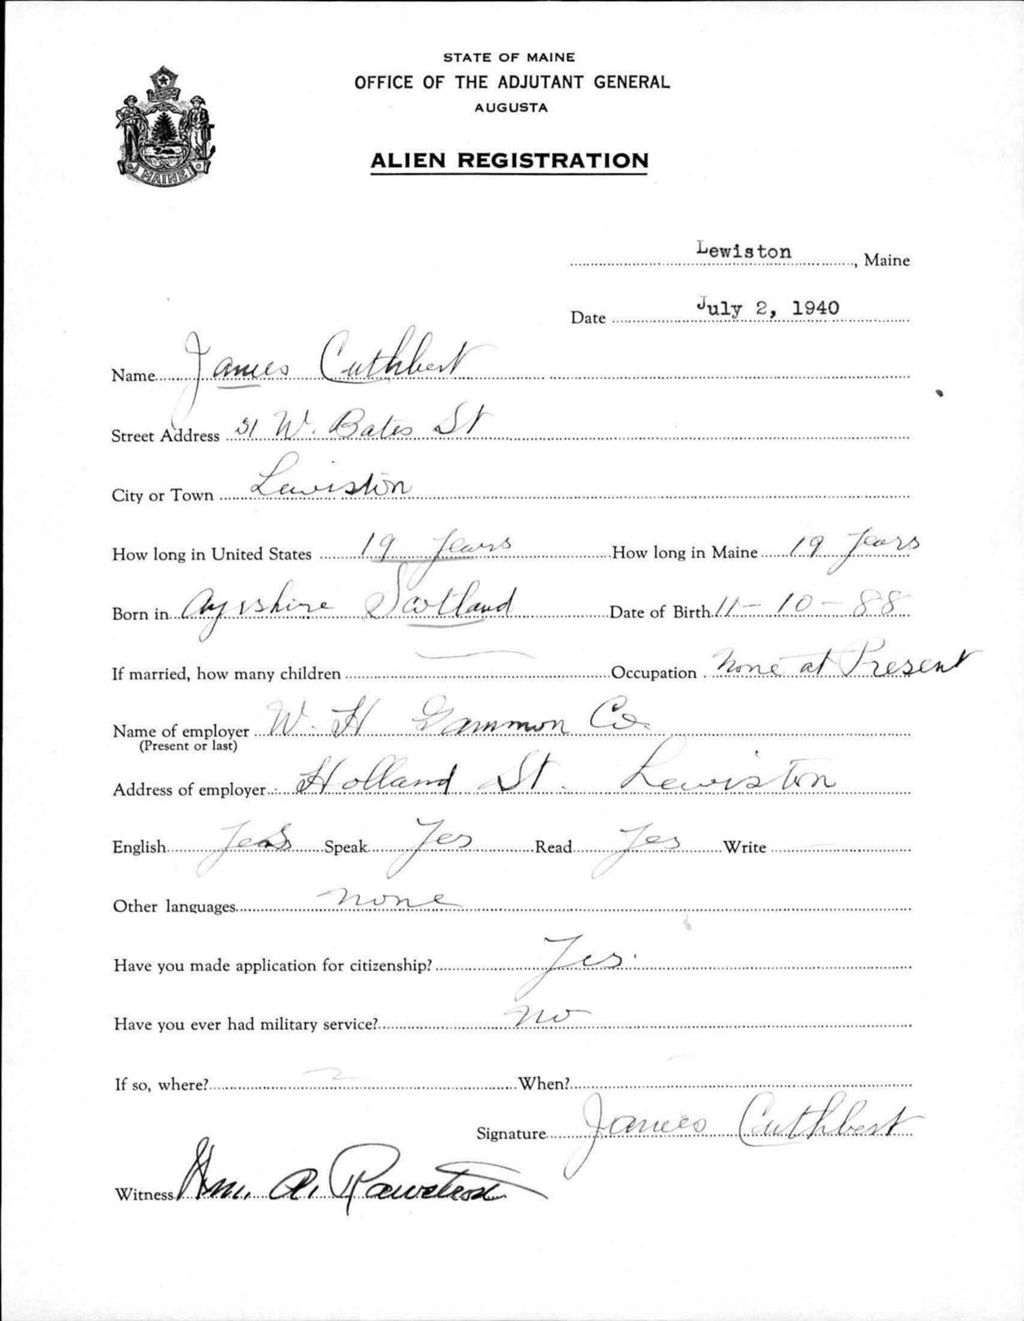 STATE OF MAINE
OFFICE OF THE ADJUTANT GENERAL
AUGUSTA
MAINE
ALIEN REGISTRATION
Lewiston, Maine
Date July 2, 1940
Name James Cuthbert
Street Address 31 W. Bates St
City or Town Lewiston
How long in United States 19 years How long in Maine 19 years
Born in Ayrshire Scotland Date of Birth 11-10-88
If married, how many children — Occupation None at Present
Name of employer W. H Gammon Co.
(Present or last)
Address of employer Holland St. Lewiston
English Yes Speak Yes Read Yes Write
Other languages none
Have you made application for citizenship? Yes.
Have you ever had military service? no
If so, where? When?
Signature James Cuthbert
Witness Wm. A. Rawstron